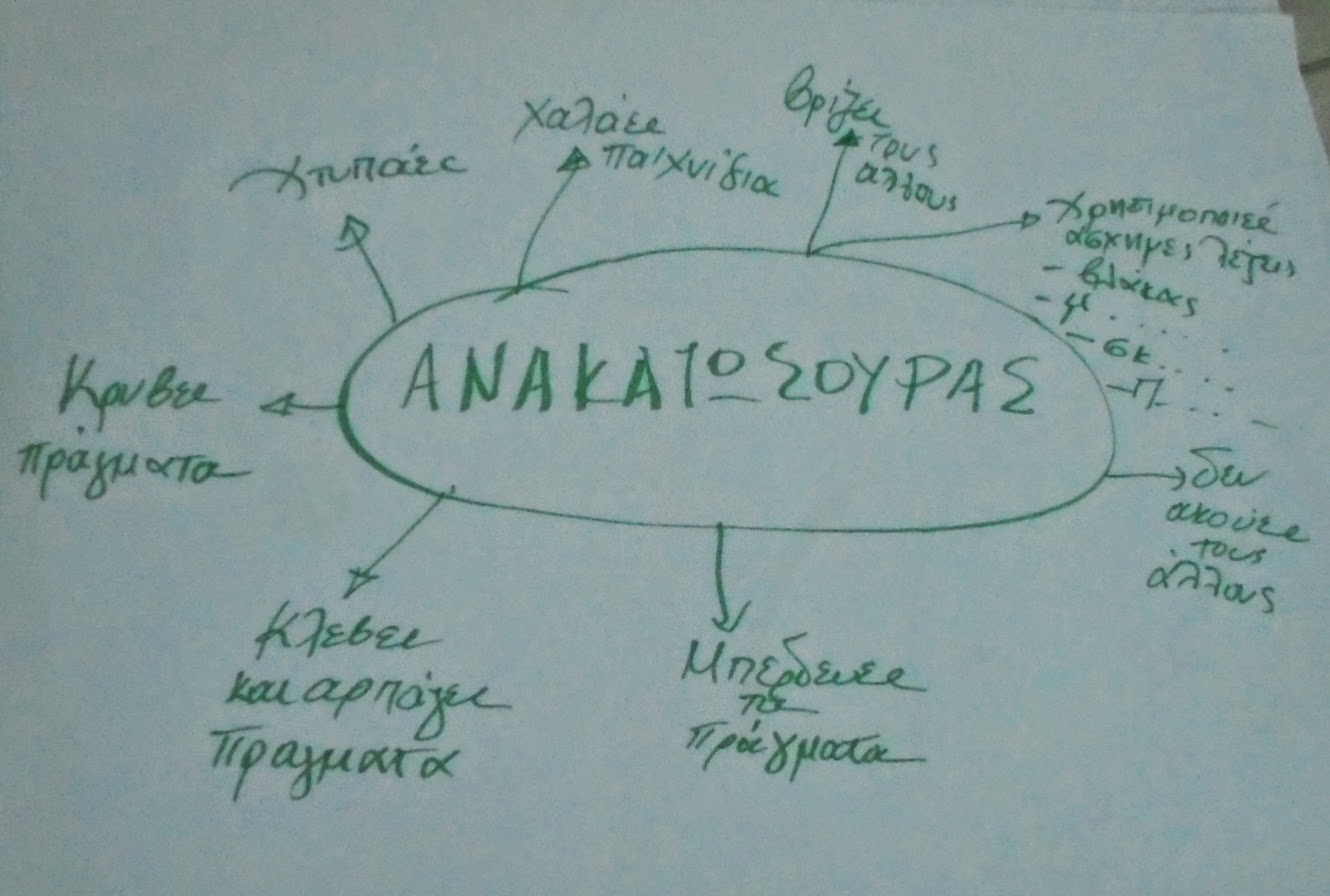 Χτυπάει
Χαλάει
παιχνίδια
Βρίζει
τους
άλλους
Χρησιμοποιεί
άσχημες λέξεις
- βλάκας
- μ.....
- σκ.....
- Π.....
ΑΝΑΚΑΤΩΣΟΥΡΑΣ
Κρύβει
πράγματα
δεν
ακούει
τους
άλλους
Κλέβει
και αρπάζει
πράγματα
Μπερδεύει
τα
πράγματα